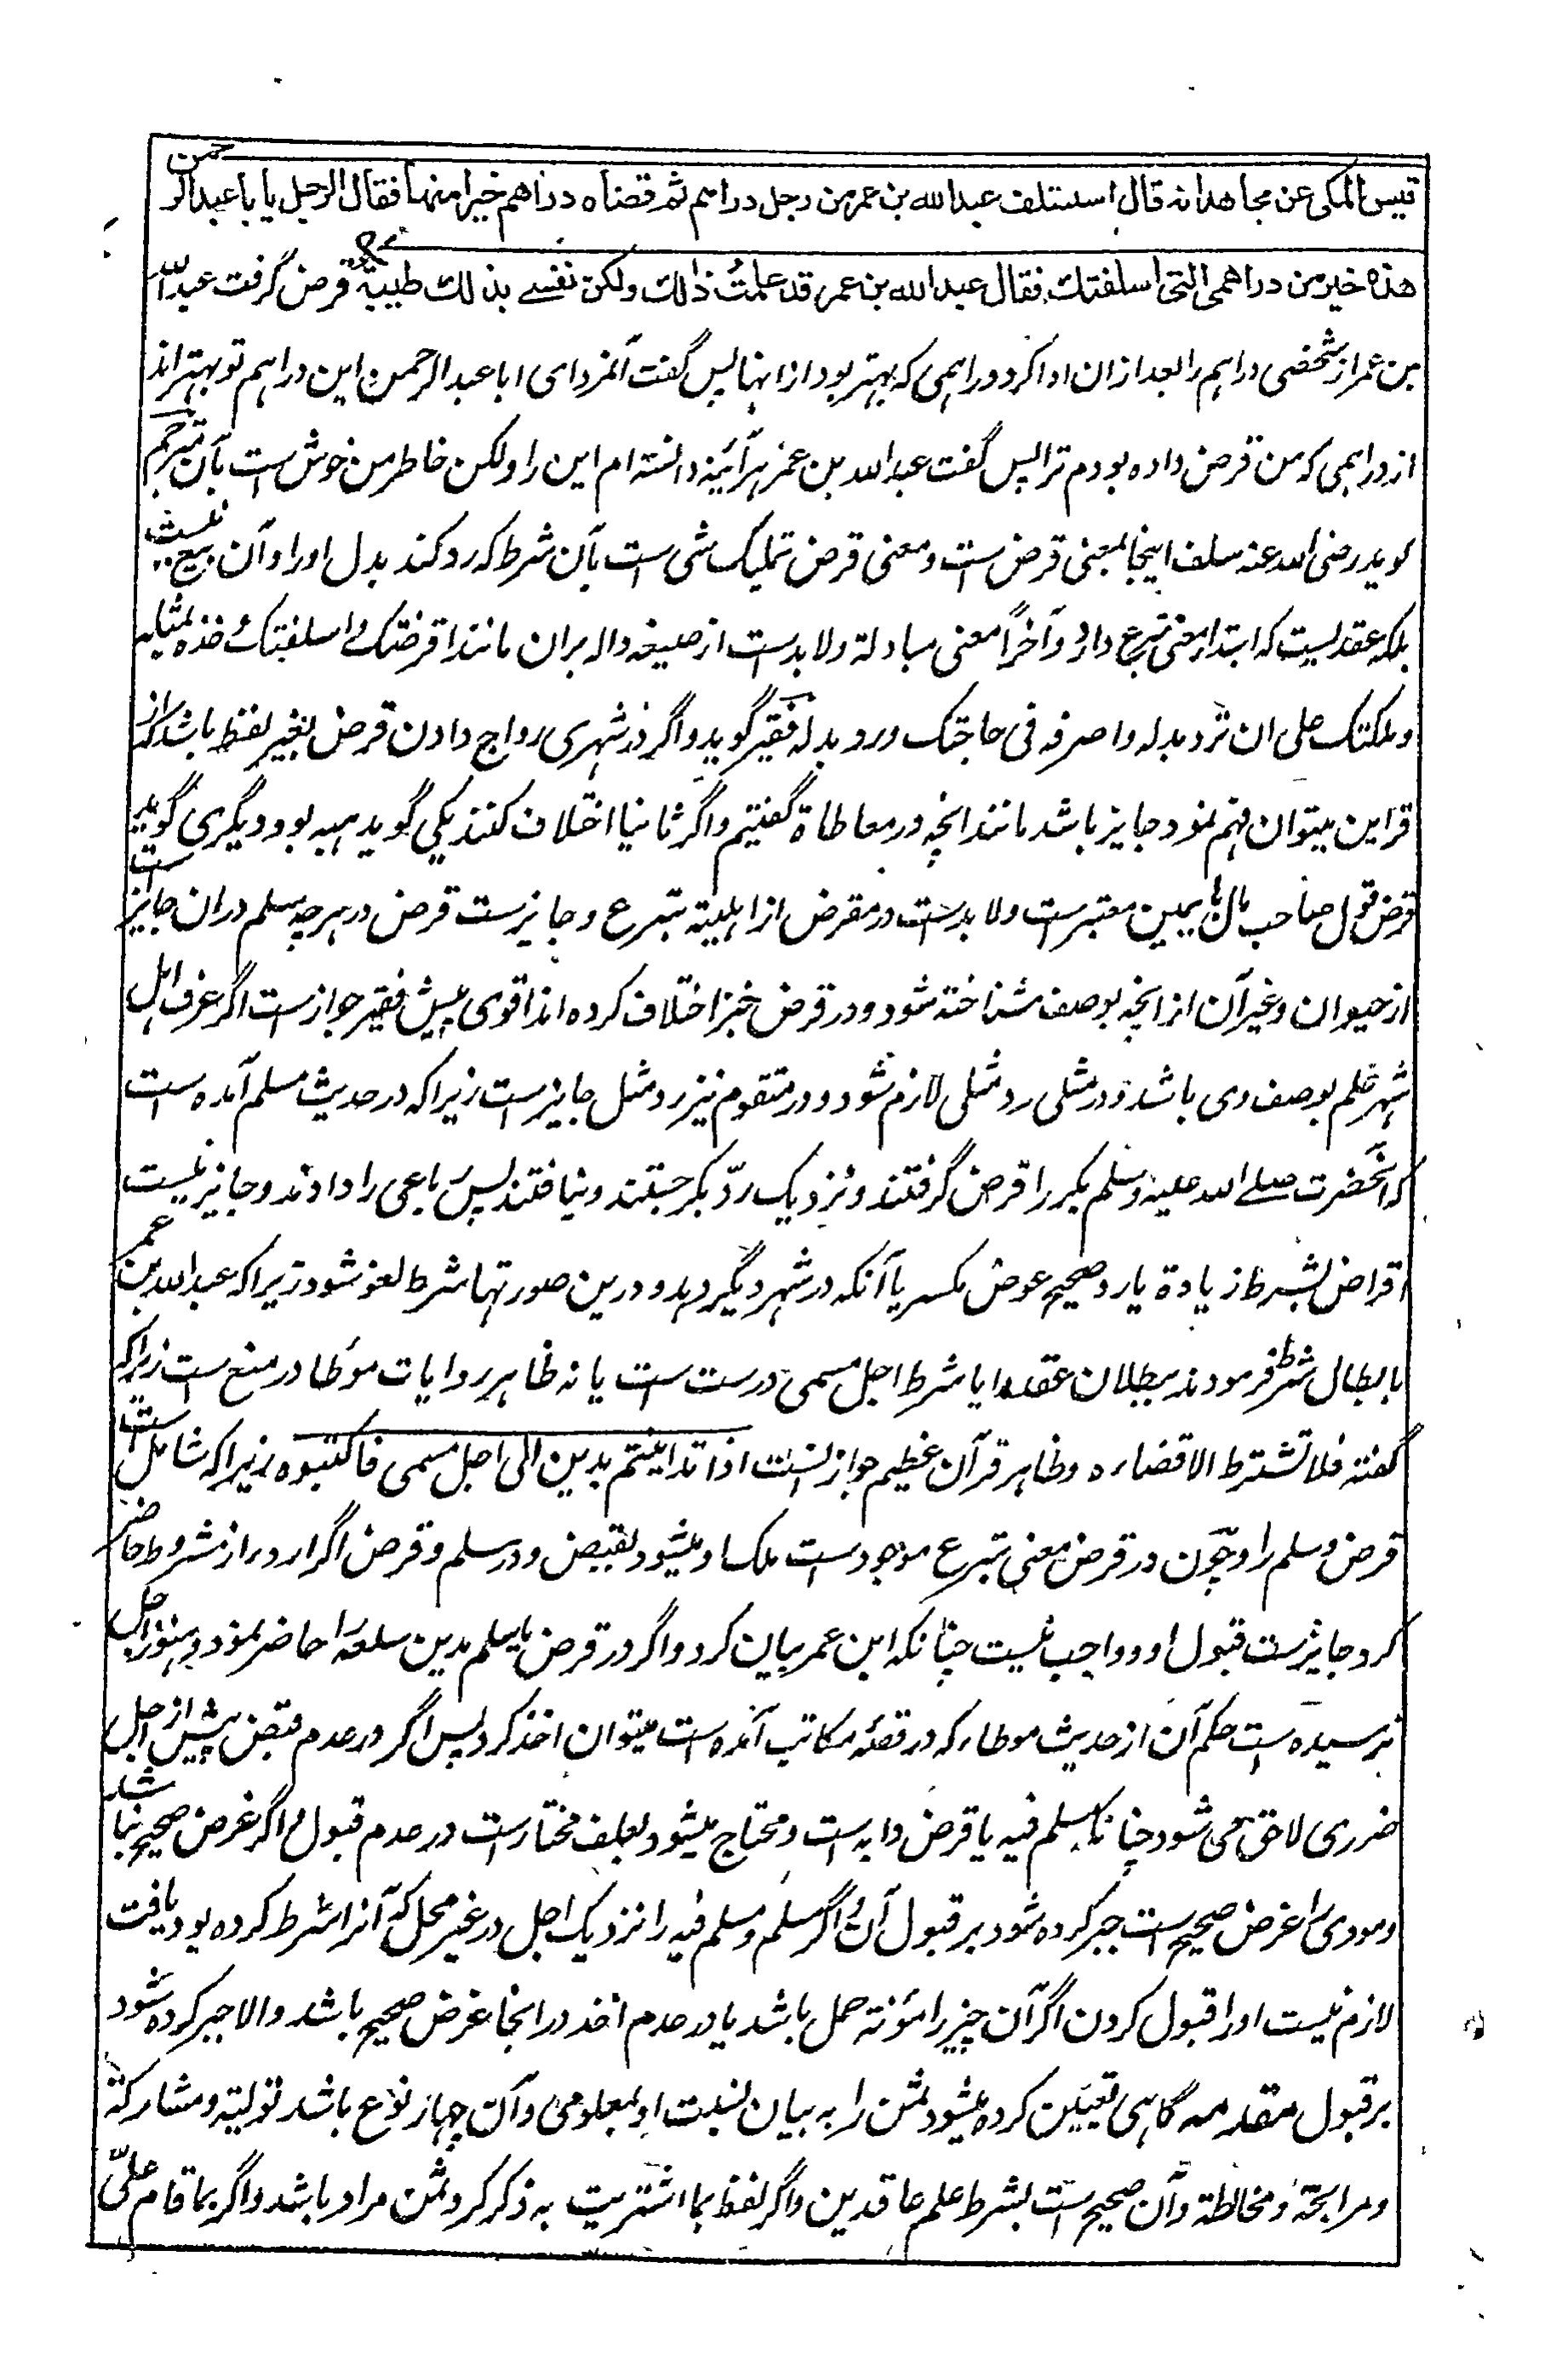 قيس المكى عن مجاهد انه قال استسلف عبد الله بن عمر من رجل دراهم ثم قضاه دراهم خيرا منها فقال الرجل يا ابا عبد الرحمن
هذه خير من دراهمى التى اسلفتك فقال عبد الله بن عمر قد علمتُ ذالك ولكن نفسے بذلك طيبة قرض گرفت عبد اللّٰه
بن عمر از شخصی دراهم را بعد ازان ادا کرد دراهمی که بهتر بود از انها پس گفت آنمرد ای ابا عبد الرحمن این دراهم تو بهتر اند
از دراهمی که من قرض داده بودم ترا پس گفت عبد الله بن عمر هرآئینه دانسته ام این را ولکن خاطر من خوش است بآن مترجم
گوید رضی الله عنه سلف اینجا بمعنی قرض است و معنی قرض تملیک شی است بآن شرط که رد کند بدل او را و آن بیع نیست
بلکه عقدیست که ابتداءً معنی تبرع دارد و آخراً معنی مبادلة ولابدست از صیغه داله بران مانند اقرضتک و اسلفتک و خذه بمثله
و ملکتک علی ان ترد بدله و اصرفه فی حاجتک ورد بدله فقیر گوید و اگر در شهری رواج دادن قرض بغیر لفظ باشد که از
قراین میتوان فهم نمود جایز باشد مانند انچه در معاطاة گفتیم و اگر ثانیا اختلاف کنند یکی گوید هبه بود و دیگری گوید
قرض قول صاحب مال با یمین معتبرست ولابدست در مقرض از اهلیة تبرع و جایزست قرض در هرچه سلم دران جایز ست
از حیوان و غیر آن از انچه بوصف شناخته شود و در قرض خبز اختلاف کرده اند اقوی پیش فقیر جوازست اگر عرف اهل
شهر علم بوصف وی باشد و در مثلی رد مثلی لازم شود و در متقوم نیز رد مثل جایزست زیرا که در حدیث مسلم آمده است
که آنحضرت صلے الله علیه وسلم بکر را قرض گرفتند و نزدیک ردّ بکر جستند و نیافتند پس رباعی را دادند و جایز نیست
اقراض بشرط زیادة یا رد صحیح عوض مکسر یا آنکه در شهر دیگر دهد و درین صورتها شرط لغو شود زیرا که عبد الله بن عمر
بابطال شرط فرمودند نه ببطلان عقد و ایا شرط اجل مسمی درست ست یا نه ظاهر روایات موطا در منع ست زیرا که
گفته فلا تشترط الا قضاءه و ظاهر قرآن عظیم جواز نست اذا تداینتم بدین الی اجل مسمی فاکتبوه زیرا که شامل ست
قرض و سلم را و چون در قرض معنی تبرع موجودست ملک او میشود بقبض و در سلم و قرض اگر اردء از مشروط حاضر
کرد جایزست قبول او و واجب نیست چنانکه ابن عمر بیان کرد و اگر در قرض یا سلم مدین سلعه را حاضر نمود و هنوز اجل
نرسیده ست حکم آن از حدیث موطاء که در قصهٔ مکاتب آمده است میتوان اخذ کرد پس اگر در عدم قبض پیش از اجل
ضرری لاحق می شود چنانکه مسلم فیه یا قرض دابه ست و محتاج میشود بعلف مختارست در عدم قبول و اگر غرض صحیح نباشد
و مودی را غرض صحیح ست جبر کرده شود بر قبول آن و اگر مسلم و مسلم فیه را نزدیک اجل در غیر محل که آنرا شرط کرده بود یافت
لازم نیست او را قبول کردن اگر آن چیز را مؤنته حمل باشد یا در عدم اخذ در انجا غرض صحیح باشد والا جبر کرده شود
بر قبول مقدمه گاهی تعیین کرده میشود ثمن را به بیان نسبت او بمعلومی و آن چهار نوع باشد تولیة و مشارکة
و مرابحة و مخالطة و آن صحیح ست بشرط علم عاقدین و اگر لفظ بما اشتریت به ذکر کرد ثمن مراد باشد و اگر بما قام علیّ